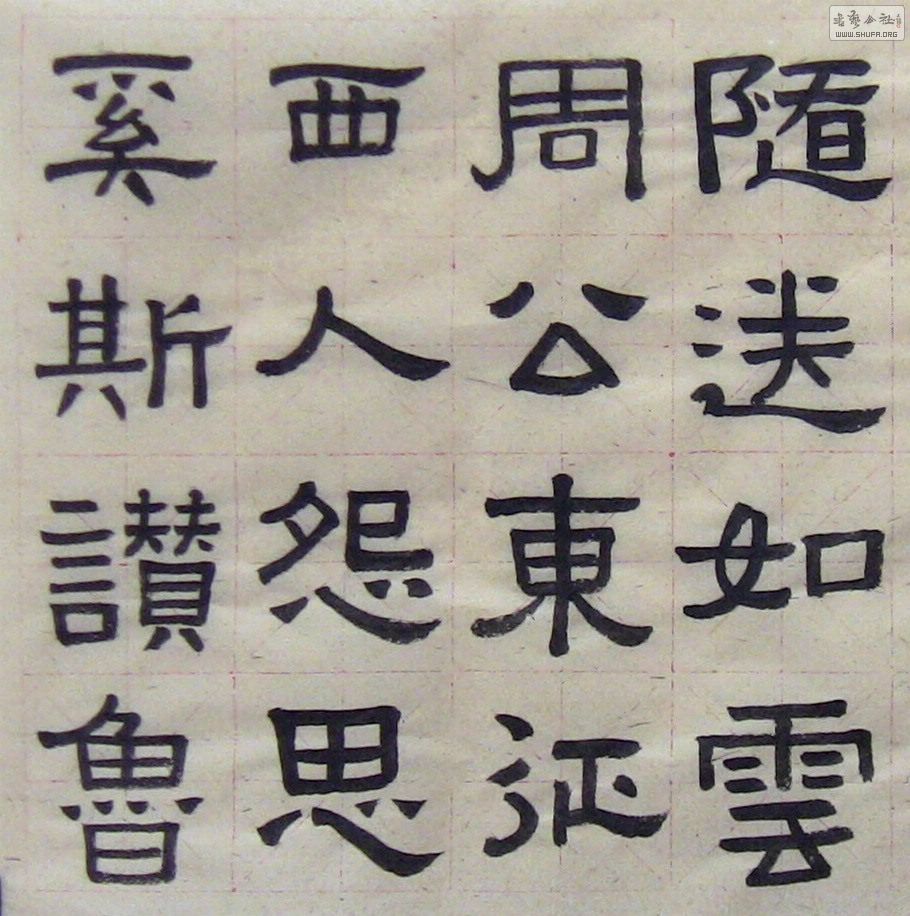 隨送如雲
周公東征
西人怨思
奚斯讃魯
WWW.SHUFA.ORG